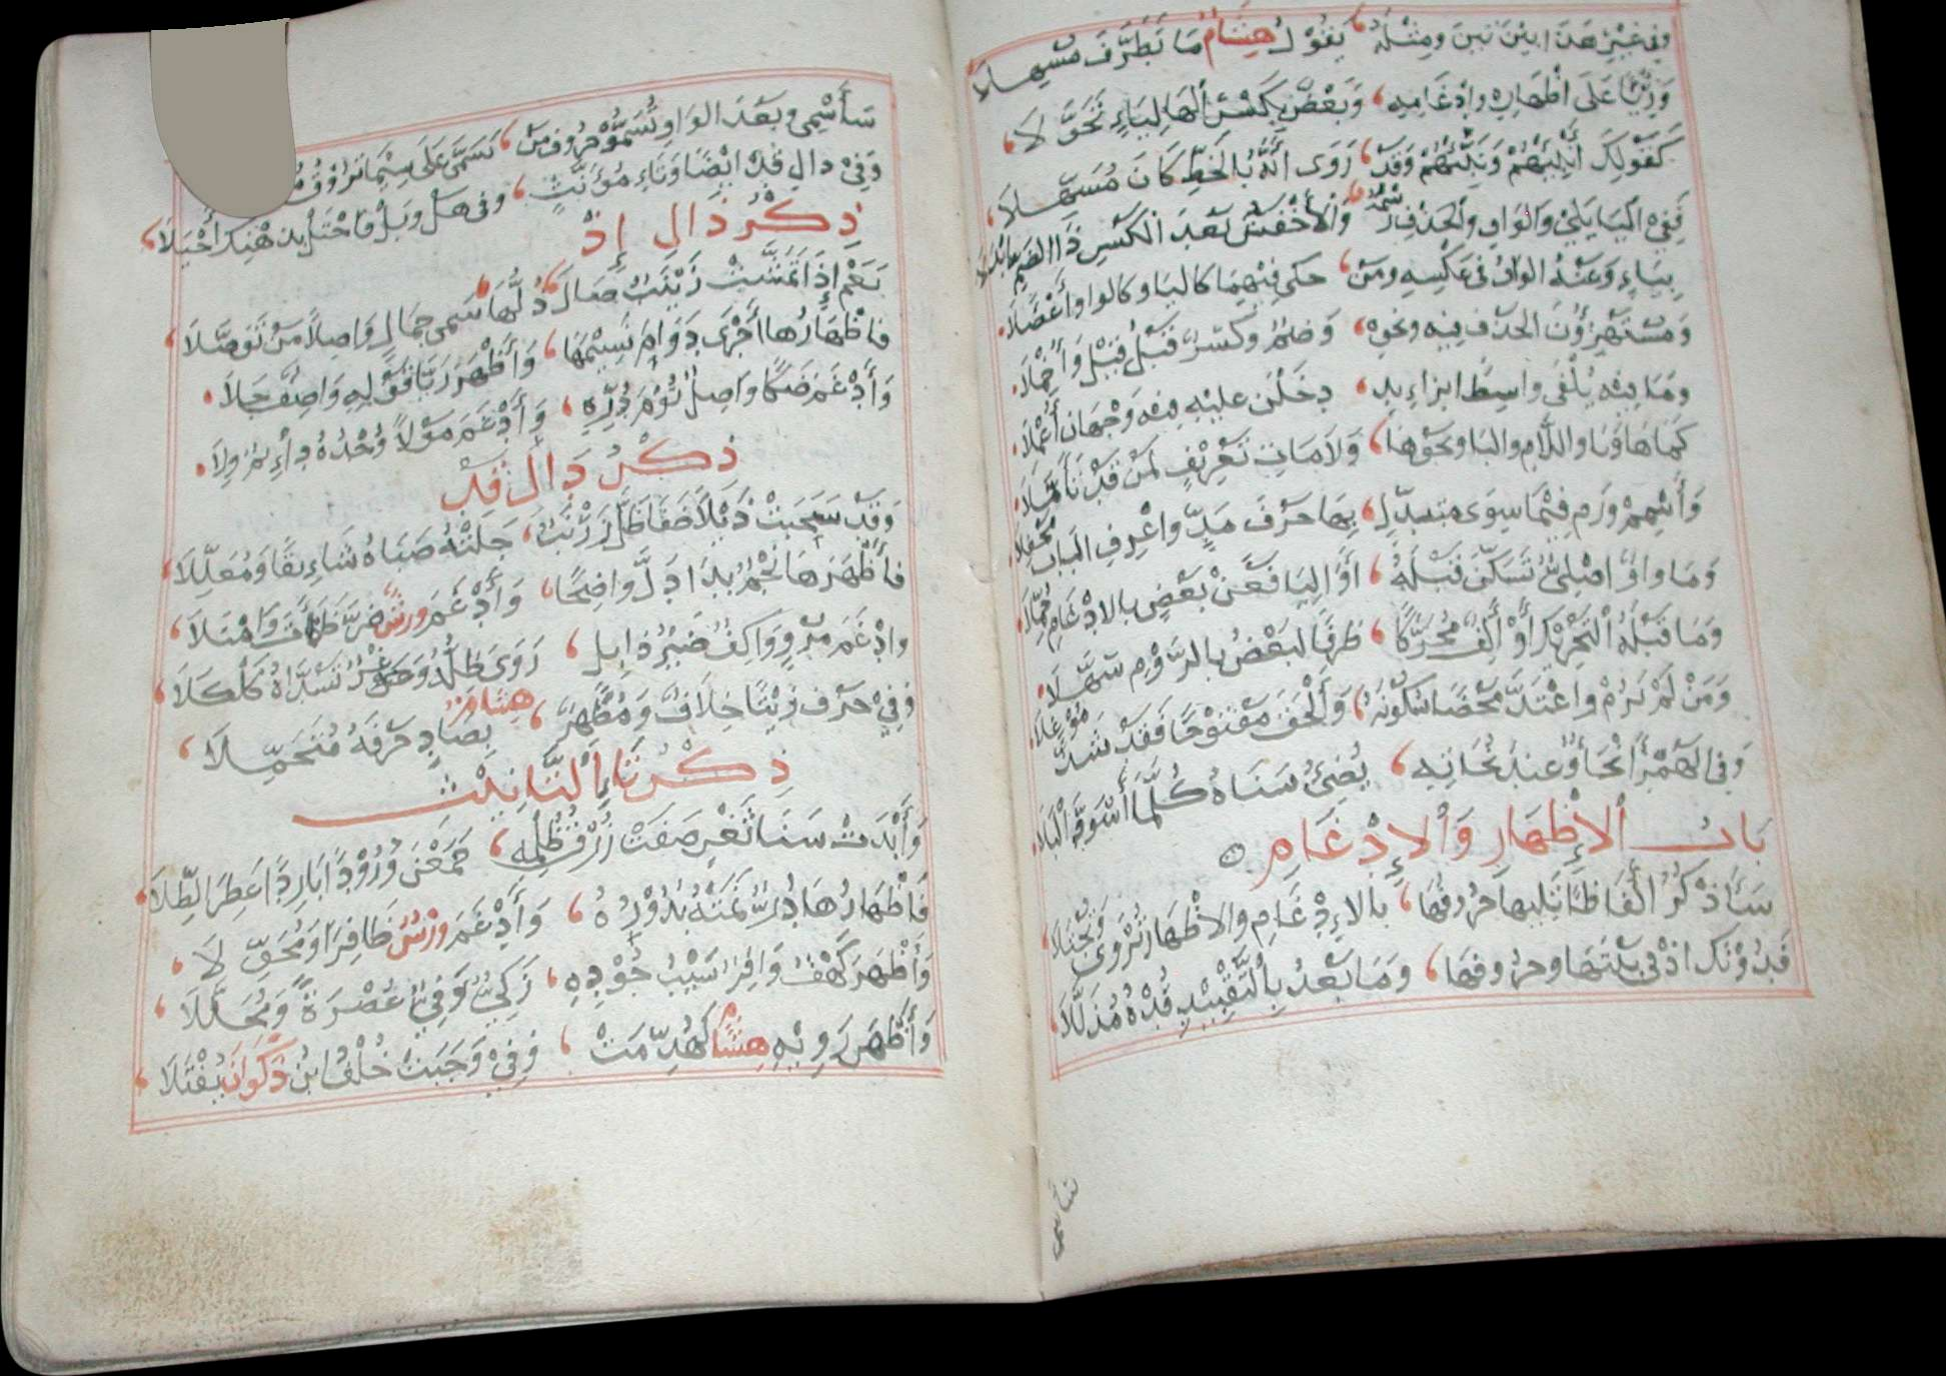 وفي غير هذا بين بين ومثله، يقول هشام ما تطرف مسهلا
ورئيا على اظهاره وادغامه، وبعض بكسر الها لياء تحولا،
كقولك أنبئهم ونبئهم وقد، رووا أنه بالخط كان مسهلا،
ففي اليا يلي والواو والحذف رسمه، والأخفش بعد الكسر ذا الضم ابدلا
بياء وعنه الواو في عكسه ومن، حكى فيهما كاليا وكالواو أعضلا،
ومستهزؤن الحذف فيه ونحوه، وضم وكسر قبل قيل وأخملا،
وما فيه يلفى واسطا بزوائد، دخلن عليه فيه وجهان أعملا،
كما ها ويا واللام والبا ونحوها، ولامات تعريف لمن قد تأملا،
وأشمم ورم فيما سوى متبدل، بها حرف مد واعرف الباب محفلا،
وما واو اصلي تسكن قبله، أو اليا فعن بعض بالادغام حملا،
وما قبله التحريك أو ألف محركا، طرفا لبعض بالروم سهلا،
ومن لم يرم واعتد محضا سكونه، وألحق مفتوحا فقد شذ موغلا،
وفي الهمز أنحاء وعند نحاته، يضيء سناه كلما أسود أليلا،
باب الإظهار والإدغام
سأذكر ألفاظا تليها حروفها، بالإدغام والاظهار تروى وتجتلا،
فدونك اذ في بيتها وحروفها، وما بعد بالتقييد قده مذللا،
سأسمي
سأسمي وبعد الواو تسمو حروف من، تسمى على سيما تروق
وفي دال قد ايضا وتاء مؤنث، وفي هل وبل فاحتل بذهنك أحيلا،
ذكر ذال إذ
نعم إذ تمشت زينب صال دلها، سمي جمال واصلا من توصلا،
فاظهارها أجرى دوام نسيمها، وأظهر ريا قوله واصف جلا،
وأدغم ضنكا واصل توم دره، وأدغم مولا وجده دائم ولا،
ذكر دال قد
وقد سحبت ذيلا ضفا ظل زرنب، جلته صباه شائقا ومعللا،
فأظهرها نجم بدا دل واضحا، وأدغم ورش ضر ظمآن وامتلا،
وادغم مرو واكف ضير ذابل، زوى ظله وغر تسداه كلكلا،
وفي حرف زينا خلاف ومظهر، هشام بصاد حرفه متحملا،
ذكر تاء التأنيث
وأبدت سنا ثغر صفت زرق ظلمه، جمعن ورودا باردا عطر الطلا،
فاظهارها در نمته بدوره، وأدغم ورش ظافرا ومخولا،
وأظهر كهف وافر سيب جوده، زكي وفي عصرة ومحللا،
وأظهر راويه هشام لهدمت، وفي وجبت خلف ابن ذكوان يفتلا،